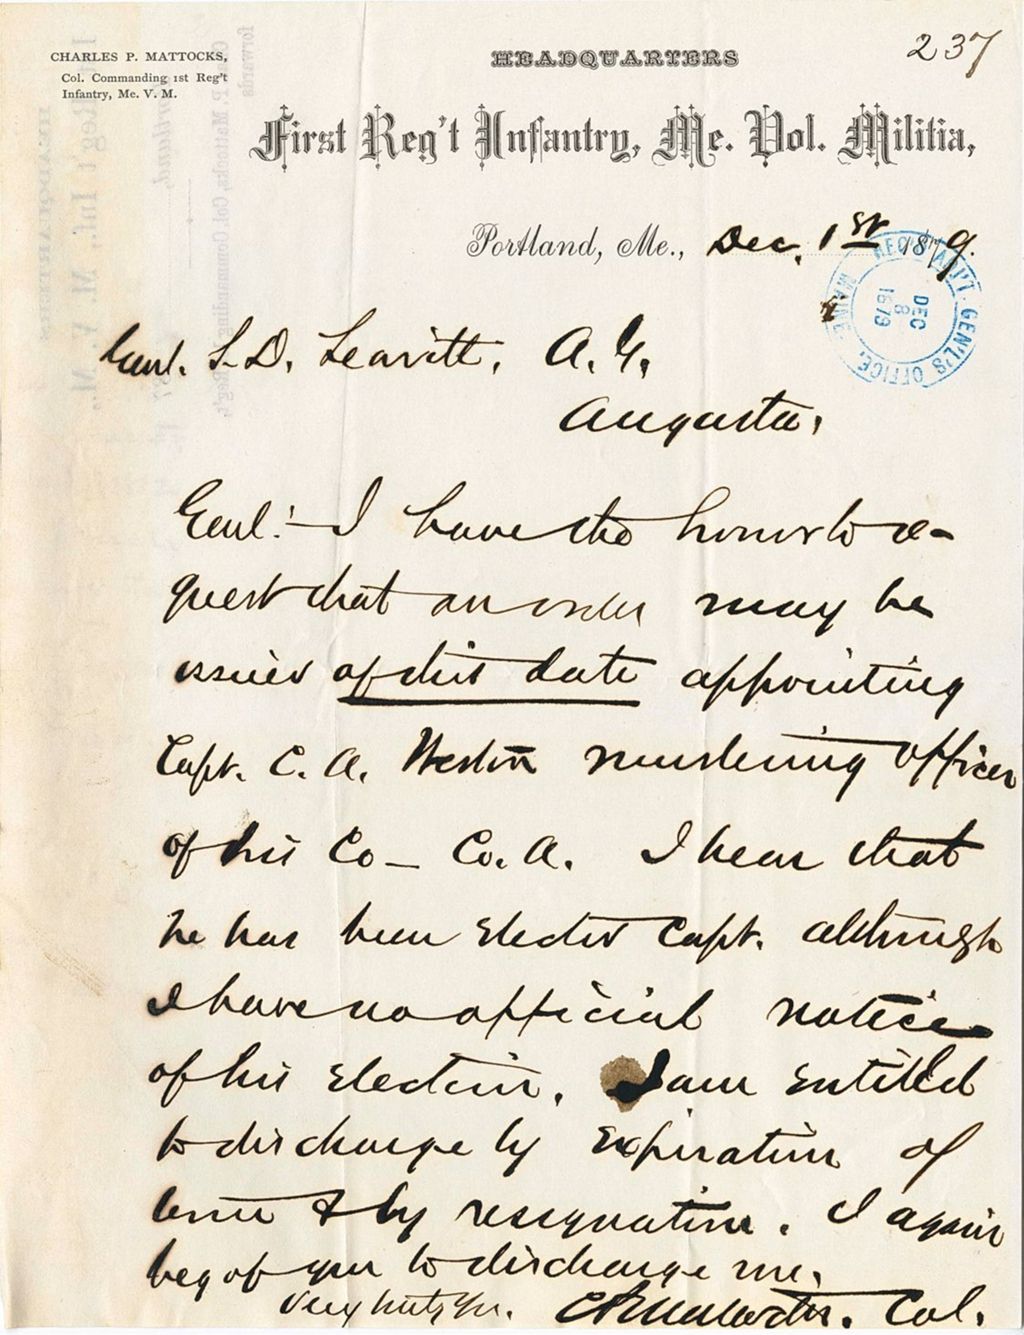 237
CHARLES P. MATTOCKS,
Col. Commanding 1st Reg't
Infantry, Me. V. M.
HEADQUARTERS
First Reg't Infantry, Me. Vol. Militia,
Portland, Me., Dec. 1st 1879.
REC'D ADJ'T. GEN'L'S OFFICE, MAINE.
DEC
8
1879
Genl. S. D. Leavitt, A. G.
Augusta.
Genl:— I have the honor to re-
quest that an order may be
issued of this date appointing
Capt. C. A. Weston mustering officer
of his Co — Co. A. I hear that
he has been elected Capt. although
I have no official notice
of his election. I am entitled
to discharge by expiration of
term & by resignation. I again
beg of you to discharge me.
Very truly Yrs. C P Mattocks. Col.